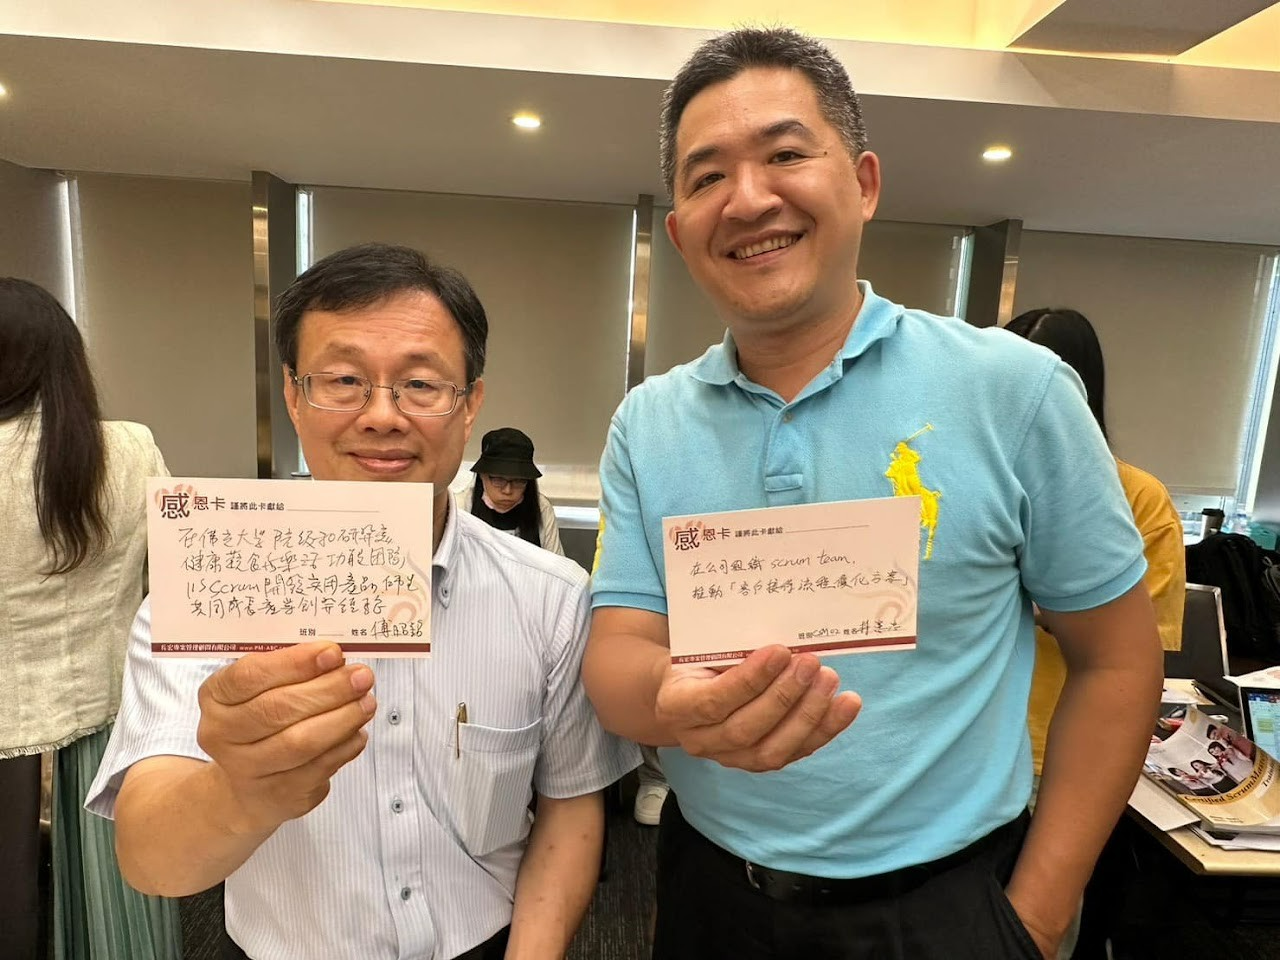 感恩卡 謹將此卡獻給
在佛光大學院級30研發蔬
健康蔬食 樂活 功能團隊
以Scrum開發實用產品 師生
共同成長產學創新經驗
班別 姓名 傅昭銘
長宏專案管理顧問有限公司 www.PM-ABC
感恩卡 謹將此卡獻給
在公司組織 scrum team,
推動「客戶接待流程優化方案」
班別 CSM02 姓名 林
長宏專案管理顧問有限公司
Certified ScrumMaster
Training